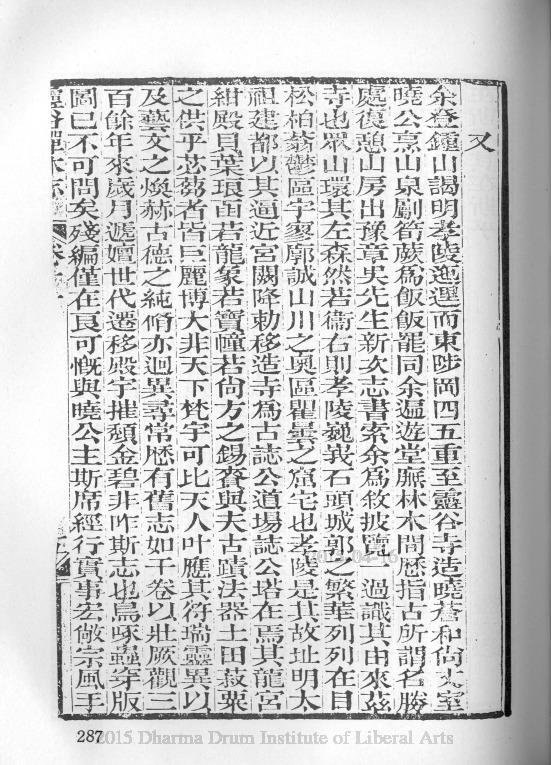 又
余登鍾山謁明孝陵迤邐而東陟岡四五重至靈谷寺造曉蒼和尚丈室
曉公烹山泉劚筍蕨為飯飯罷同余遍遊堂廡林木間歷指古所謂名勝
處復憩山房出豫章吳先生新次志書索余為敘披覽一過識其由來茲
寺也眾山環其左森然若衞右則孝陵巍峩石頭城郭之繁華列列在目
松柏蓊鬱區宇寥廓誠山川之奧區瞿曇之窟宅也孝陵是其故址明太
祖建都以其逼近宮闕降勅移造寺為古誌公道場誌公塔在焉其龍宮
紺殿貝葉琅函若龍象若寶幢若尚方之錫賚與夫古蹟法器土田菽粟
之供乎苾蒭者皆巨麗博大非天下梵宇可比天人叶應其符瑞靈異以
及藝文之煥赫古德之純脩亦迥異尋常歷有舊志如干卷以壯厥觀三
百餘年來歲月遞嬗世代遷移殿宇摧頹金碧非昨斯志也鳥啄蟲穿版
圖已不可問矣殘編僅在良可慨與曉公主斯席經行實事宏敞宗風手
靈谷禪林志 卷十
五
287
2015 Dharma Drum Institute of Liberal Arts